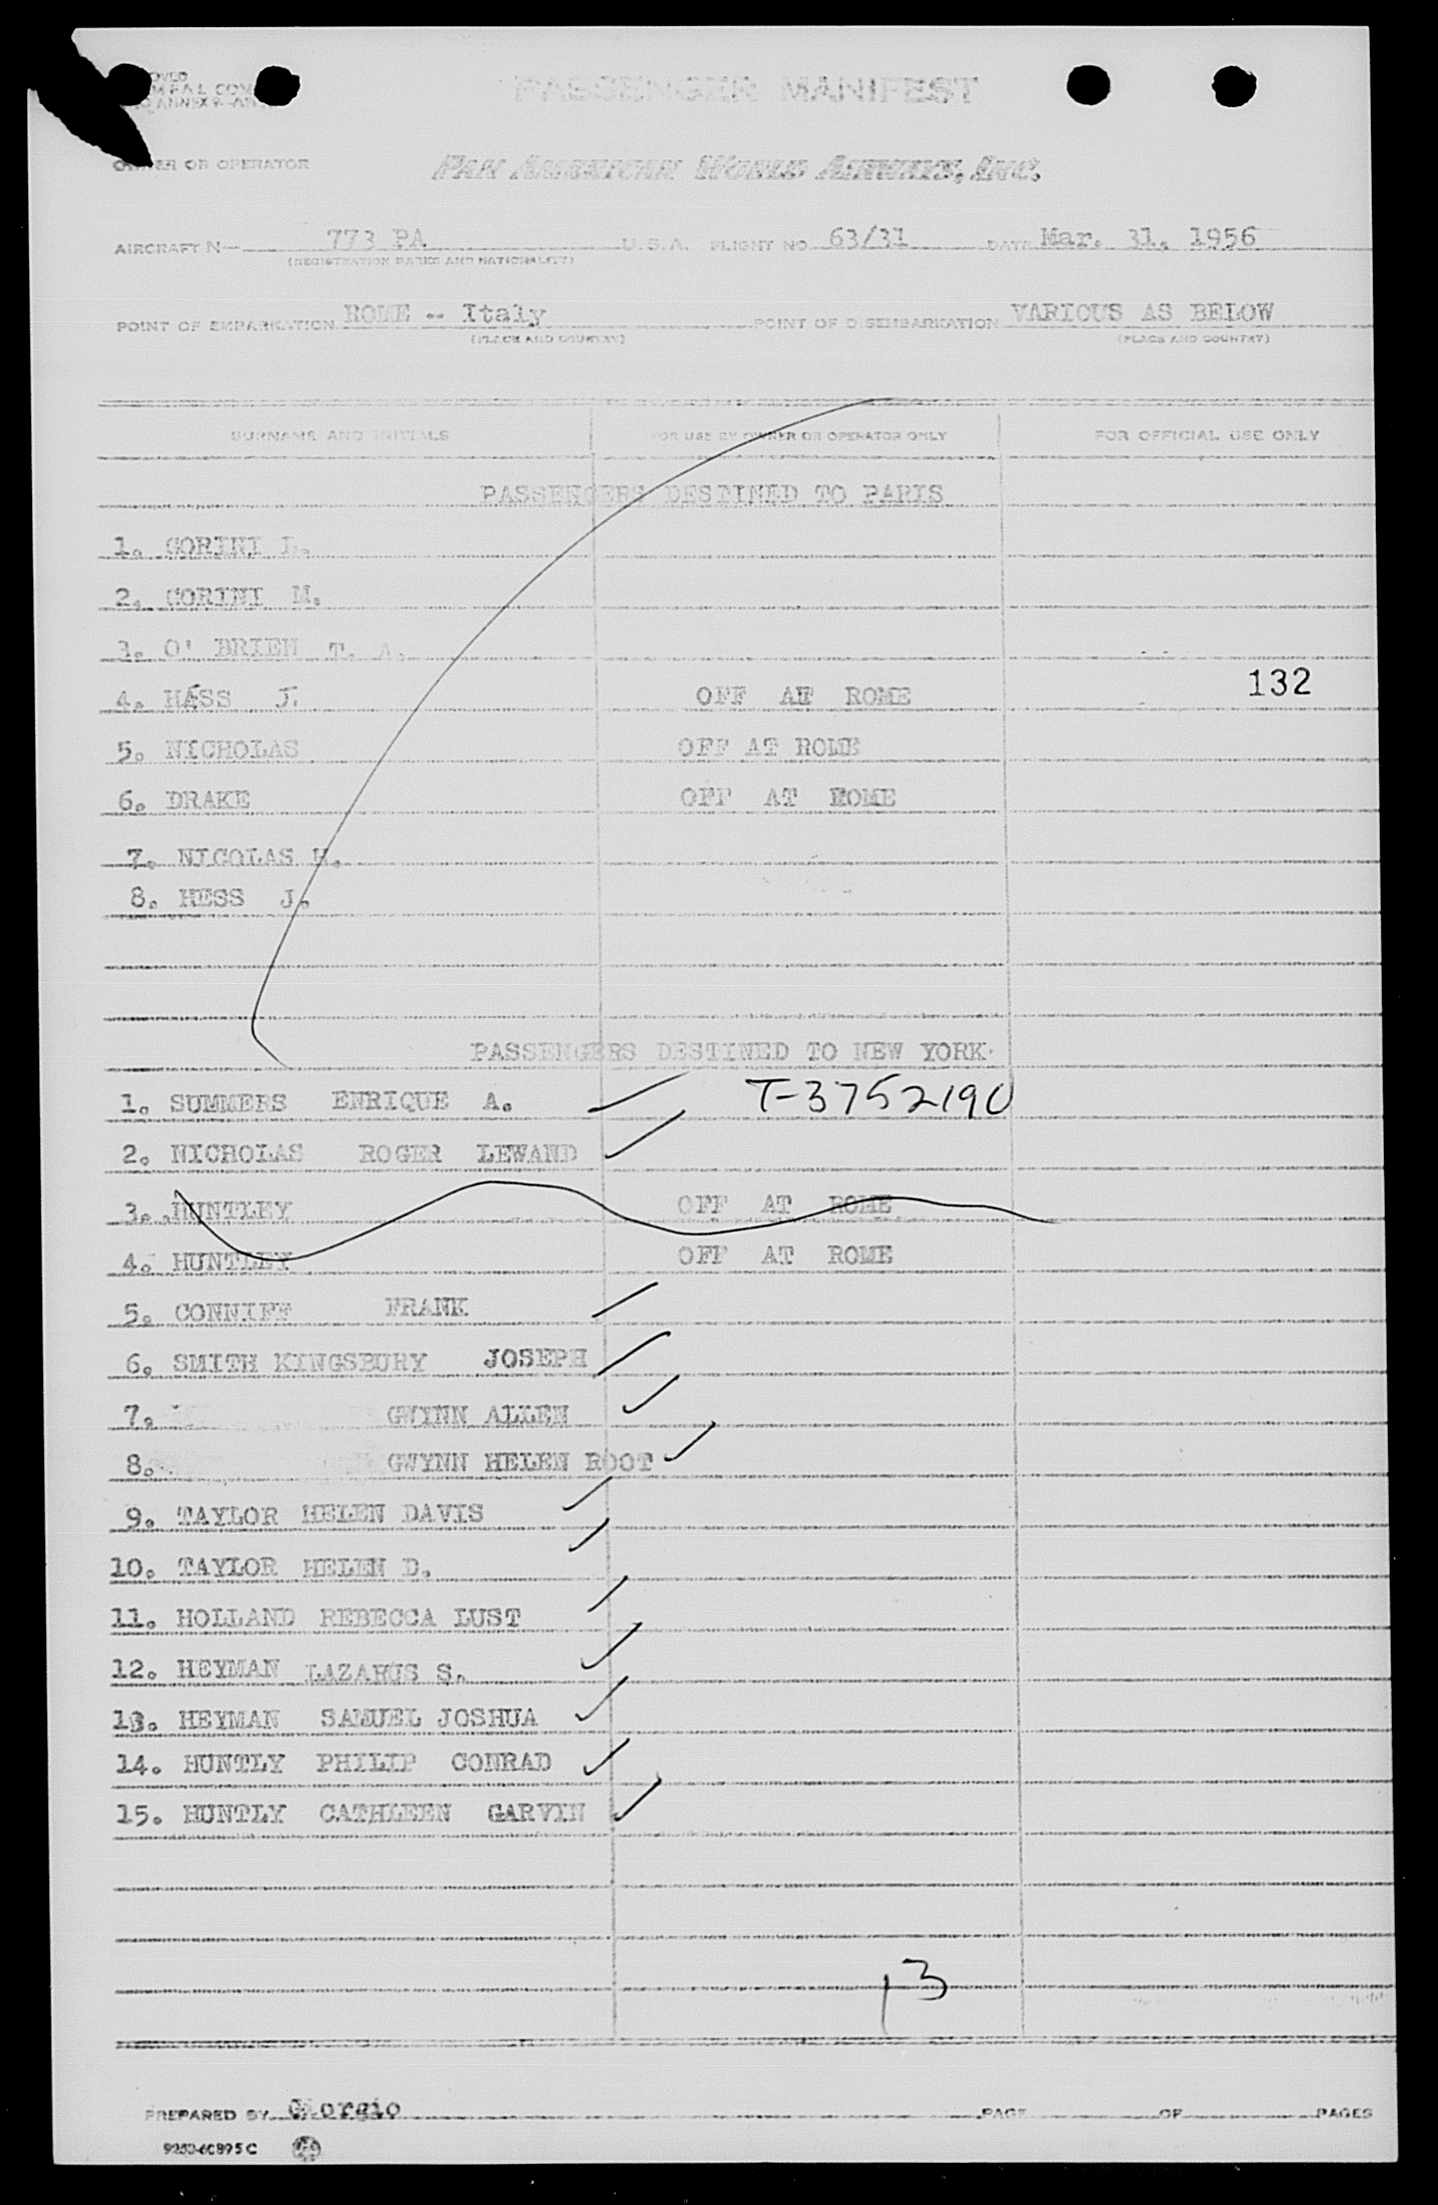 PASSENGER MANIFEST
OWNER OR OPERATOR PAN AMERICAN WORLD AIRWAYS, INC.
AIRCRAFT N— 773 PA U. S. A. FLIGHT NO. 63/31 DATE Mar. 31. 1956
(REGISTRATION MARKS AND NATIONALITY)
POINT OF EMBARKATION ROME -- Italy POINT OF DISEMBARKATION VARIOUS AS BELOW
(PLACE AND COUNTRY) (PLACE AND COUNTRY)
SURNAME AND INITIALS FOR USE BY OWNER OR OPERATOR ONLY FOR OFFICIAL USE ONLY
PASSENGERS DESTINED TO PARIS
1. CORINI L.
2. CORINI M.
3. O' BRIEN T. A.
4. HASS J. OFF AT ROME 132
5. NICHOLAS OFF AT ROME
6. DRAKE OFF AT ROME
7. NICOLAS H.
8. HESS J.
PASSENGERS DESTINED TO NEW YORK.
1. SUMMERS ENRIQUE A. T-3752190
2. NICHOLAS ROGER LEWAND
3. HUNTLEY OFF AT ROME
4. HUNTLEY OFF AT ROME
5. CONNIFF FRANK
6. SMITH KINGSBURY JOSEPH
7. GWYNN ALLEN
8. GWYNN HELEN ROOT
9. TAYLOR HELEN DAVIS
10. TAYLOR HELEN D.
11. HOLLAND REBECCA LUST
12. HEYMAN LAZARUS S.
13. HEYMAN SAMUEL JOSHUA
14. HUNTLY PHILIP CONRAD
15. HUNTLY CATHLEEN GARVIN
13
PREPARED BY Giorgio PAGE OF PAGES